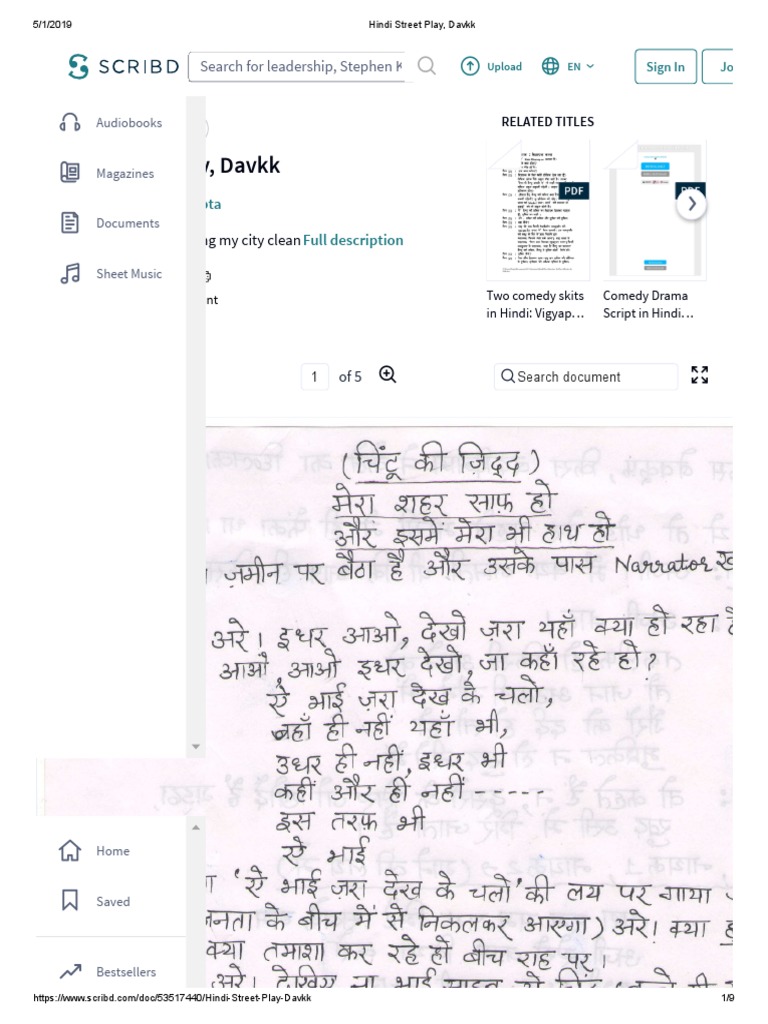 5/1/2019 Hindi Street Play, Davkk
SCRIBD Search for leadership, Stephen K Upload EN Sign In Jo
Audiobooks
Magazines
Documents
Sheet Music
y, Davkk
pta
ng my city clean Full description
nt
RELATED TITLES
PDF
PDF
Two comedy skits
in Hindi: Vigyap…
Comedy Drama
Script in Hindi…
1 of 5 Search document
(चिंटू की ज़िद्द)
मेरा शहर साफ़ हो
और इसमे मेरा भी हाथ हो
ज़मीन पर बैठा है और उसके पास Narrator ख
अरे। इधर आओ, देखो ज़रा यहाँ क्या हो रहा है
आओ, आओ इधर देखो, जा कहाँ रहे हो?
ऐ भाई ज़रा देख के चलो,
वहाँ ही नहीं यहाँ भी,
उधर ही नहीं, इधर भी
कहीं और ही नहीं - - - - -
इस तरफ़ भी
ऐ भाई
'ऐ भाई ज़रा देख के चलो' की लय पर गाया
जनता के बीच में से निकलकर आएगा) अरे। क्या
क्या तमाशा कर रहे हो बीच राह पर।
अरे। देखिए ना भाई
Home
Saved
Bestsellers
https://www.scribd.com/doc/53517440/Hindi-Street-Play-Davkk 1/9